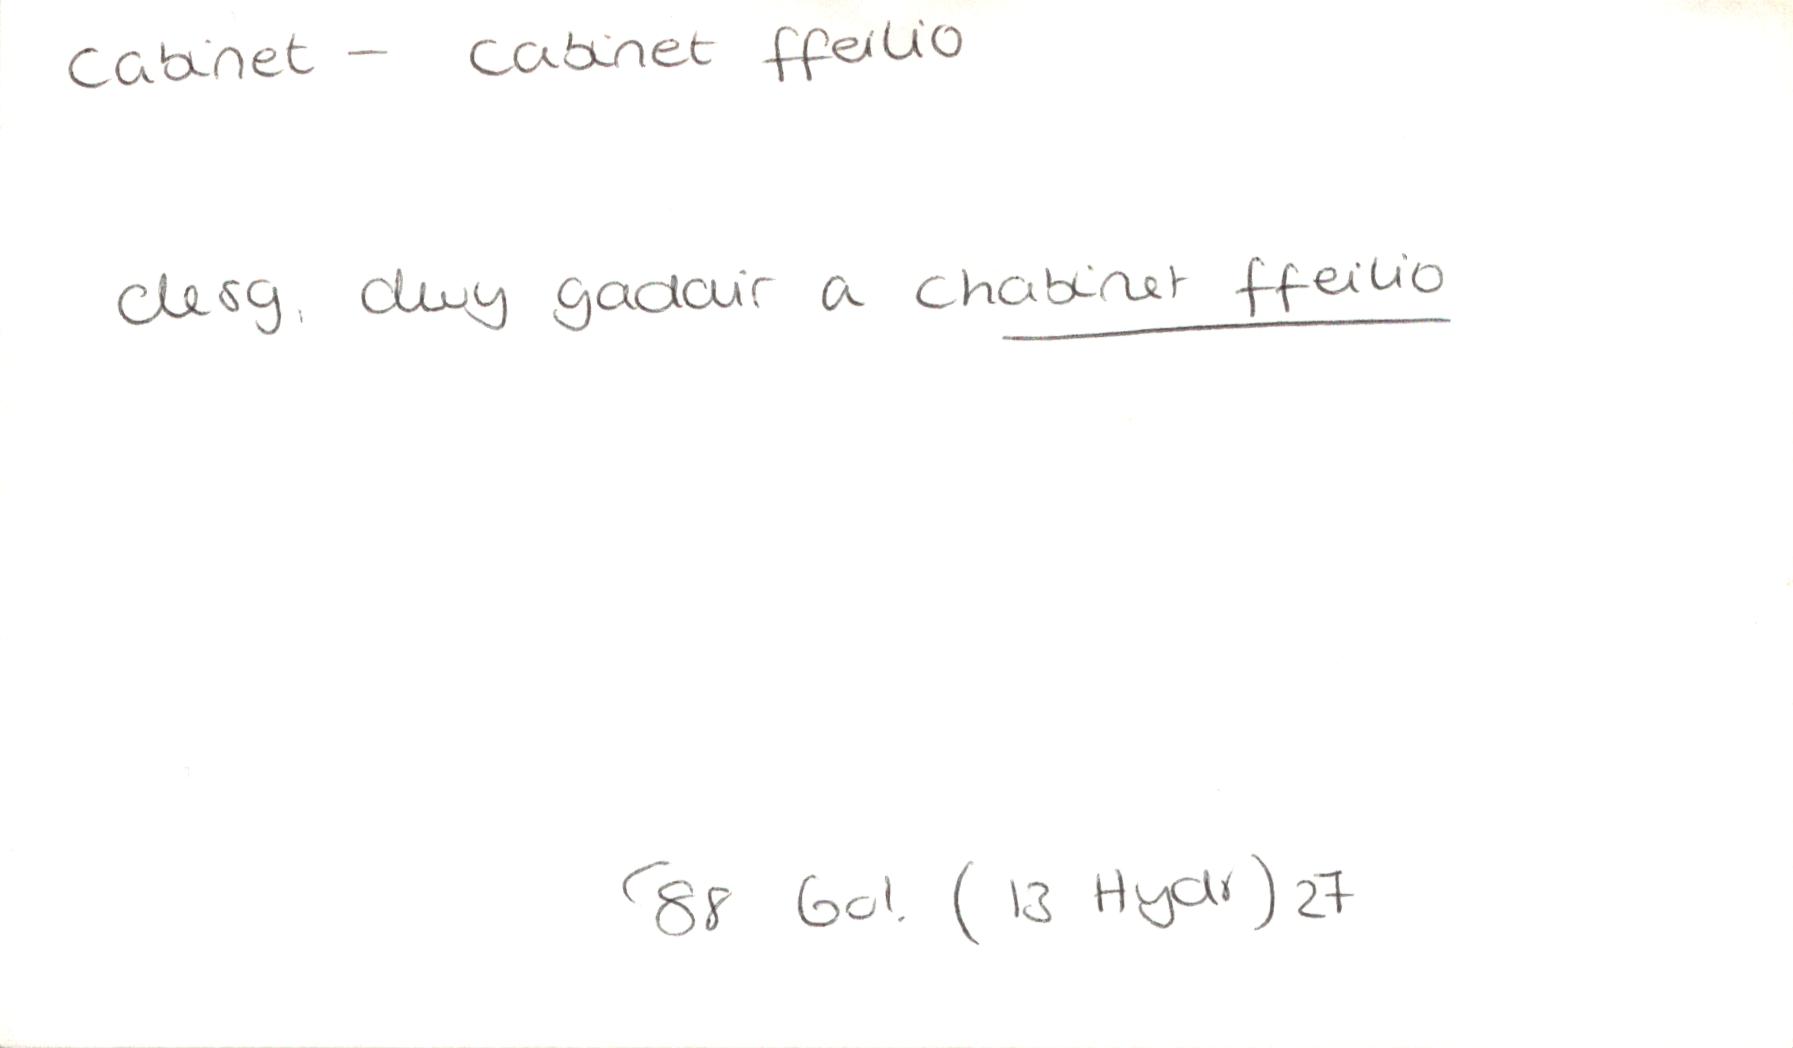 cabinet - cabinet ffeilio
desg, dwy gadair a chabinet ffeilio
'88 Gol. (13 Hydr) 27